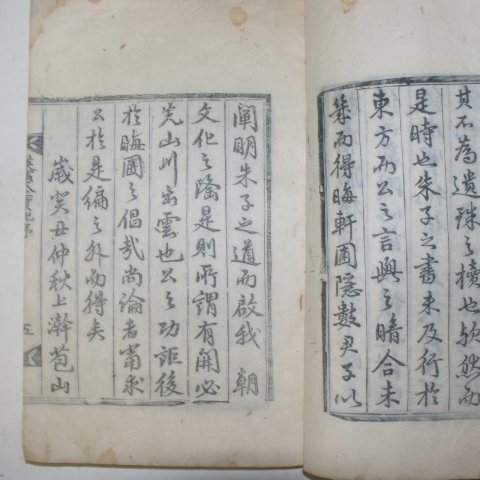 其不為遺珠之櫝也歟然而
是時也朱子之書未及行於
東方而公之言與之暗合未
幾而得晦軒圃隱數君子以
闡明朱子之道而啟我 朝
文化之隆是則所謂有開必
先山川出雲也公之功詎後
於晦圃之倡哉尚論者當求
公於是編之外而得矣
歲癸丑仲秋上澣苞山
五